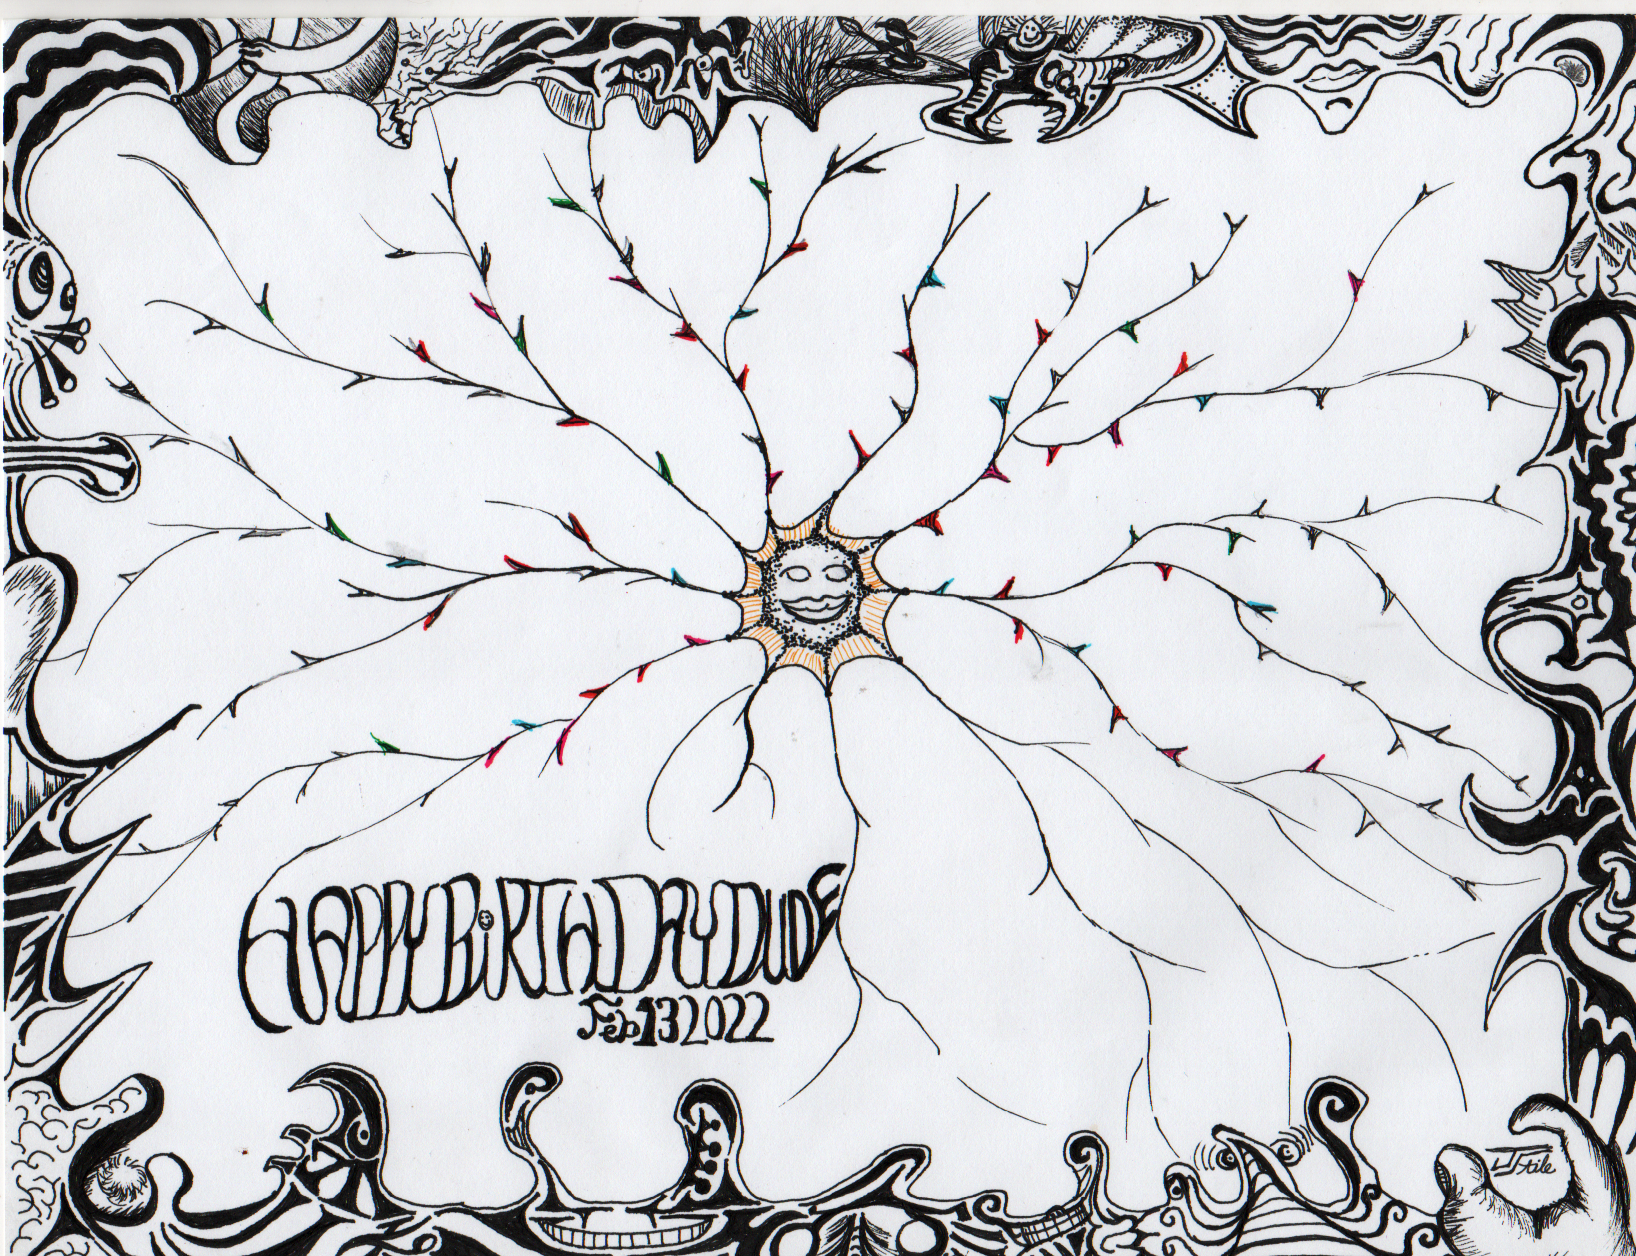 HAPPY BiRTHDAY DUDE
Feb 13 2022